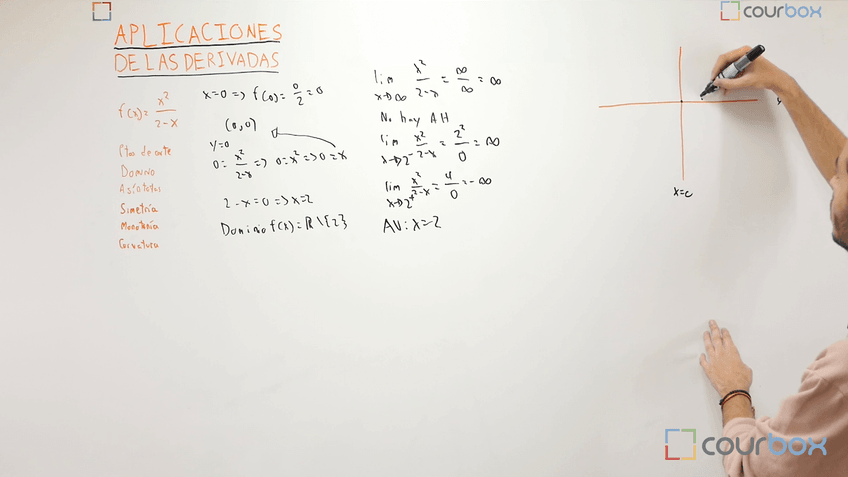 courbox
APLICACIONES
DE LAS DERIVADAS
f(x) = x²/(2-x)
Pto de corte
Dominio
Asíntotas
Simetría
Monotonía
Curvatura
x=0 => f(0) = 0/2 = 0
(0,0)
y=0
0 = x²/(2-x) => 0=x² => 0=x
2-x=0 => x=2
Dominio f(x) = ℝ\{2}
lim x→∞ x²/(2-x) = ∞/∞ = ∞
No hay AH
lim x→2⁻ x²/(2-x) = 2²/0 = ∞
lim x→2⁺ x²/(2-x) = 4/0 = -∞
AV: x=2
x=0
courbox